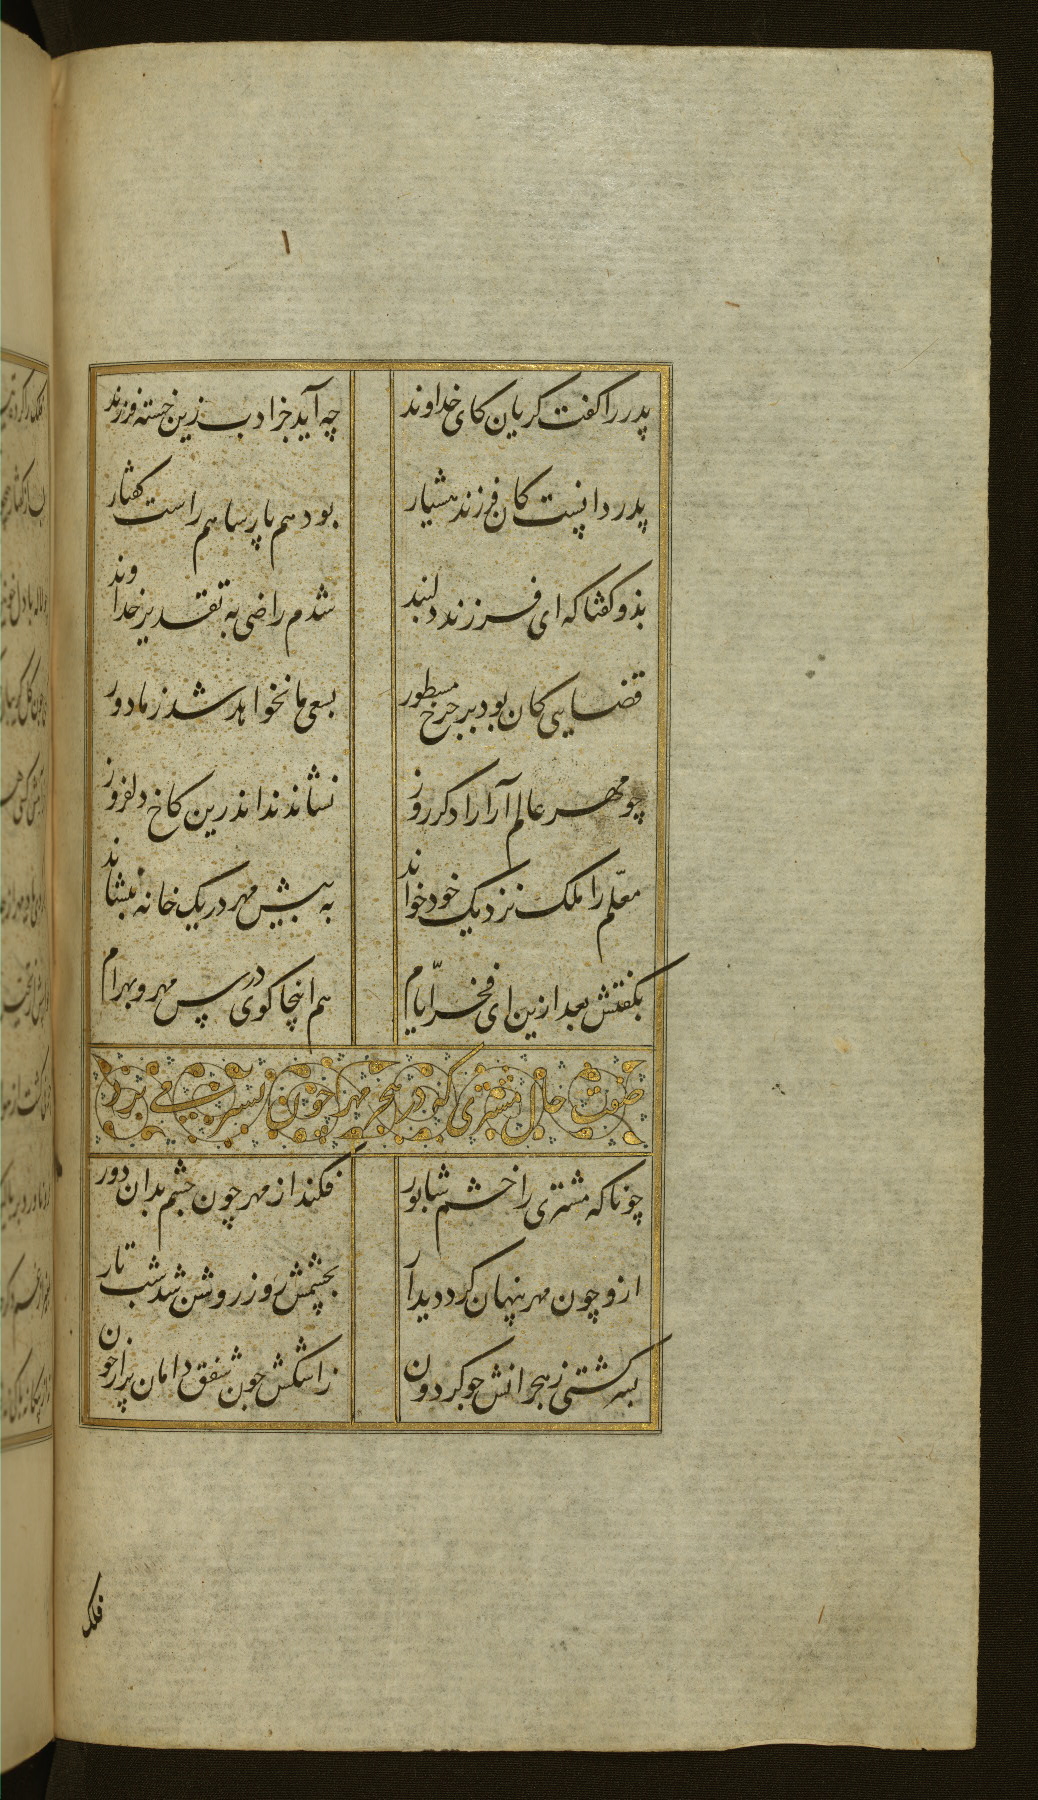 پدر را کفت کریان کای خداوند چه آید جز ادب زین خسته فرزند
پدر دانست کان فرزند هشیار بود هم پارسا هم راست کفتار
بذو کفتا که ای فرزند دلبند شدم راضی به تقدیر خداوند
قضایی کان بود بر چرخ مسطور بسعی ما نخواهد شد ز ما دور
چو مهر عالم آرا را دکر روز نشاندند اندرین کاخ دلفروز
معلّم را ملک نزدیک خود خواند به پیش مهر در یک خانه بنشاند
بکفتش بعد ازین ای فخر ایّام هم اینجا کوی درس مهر و بهرام
صفت حال مشتری کو در هجر مهر چون بسر می برد
چوناکه مشتری را خشم شابور فکند از مهر چون چشم بدان دور
ازو چون مهر پنهان کرد دیدار بچشمش روز روشن شد شب تار
بسر کشتی ز هجرانش چو کردون ز اشکش چون شفق دامان پر از خون
فلک